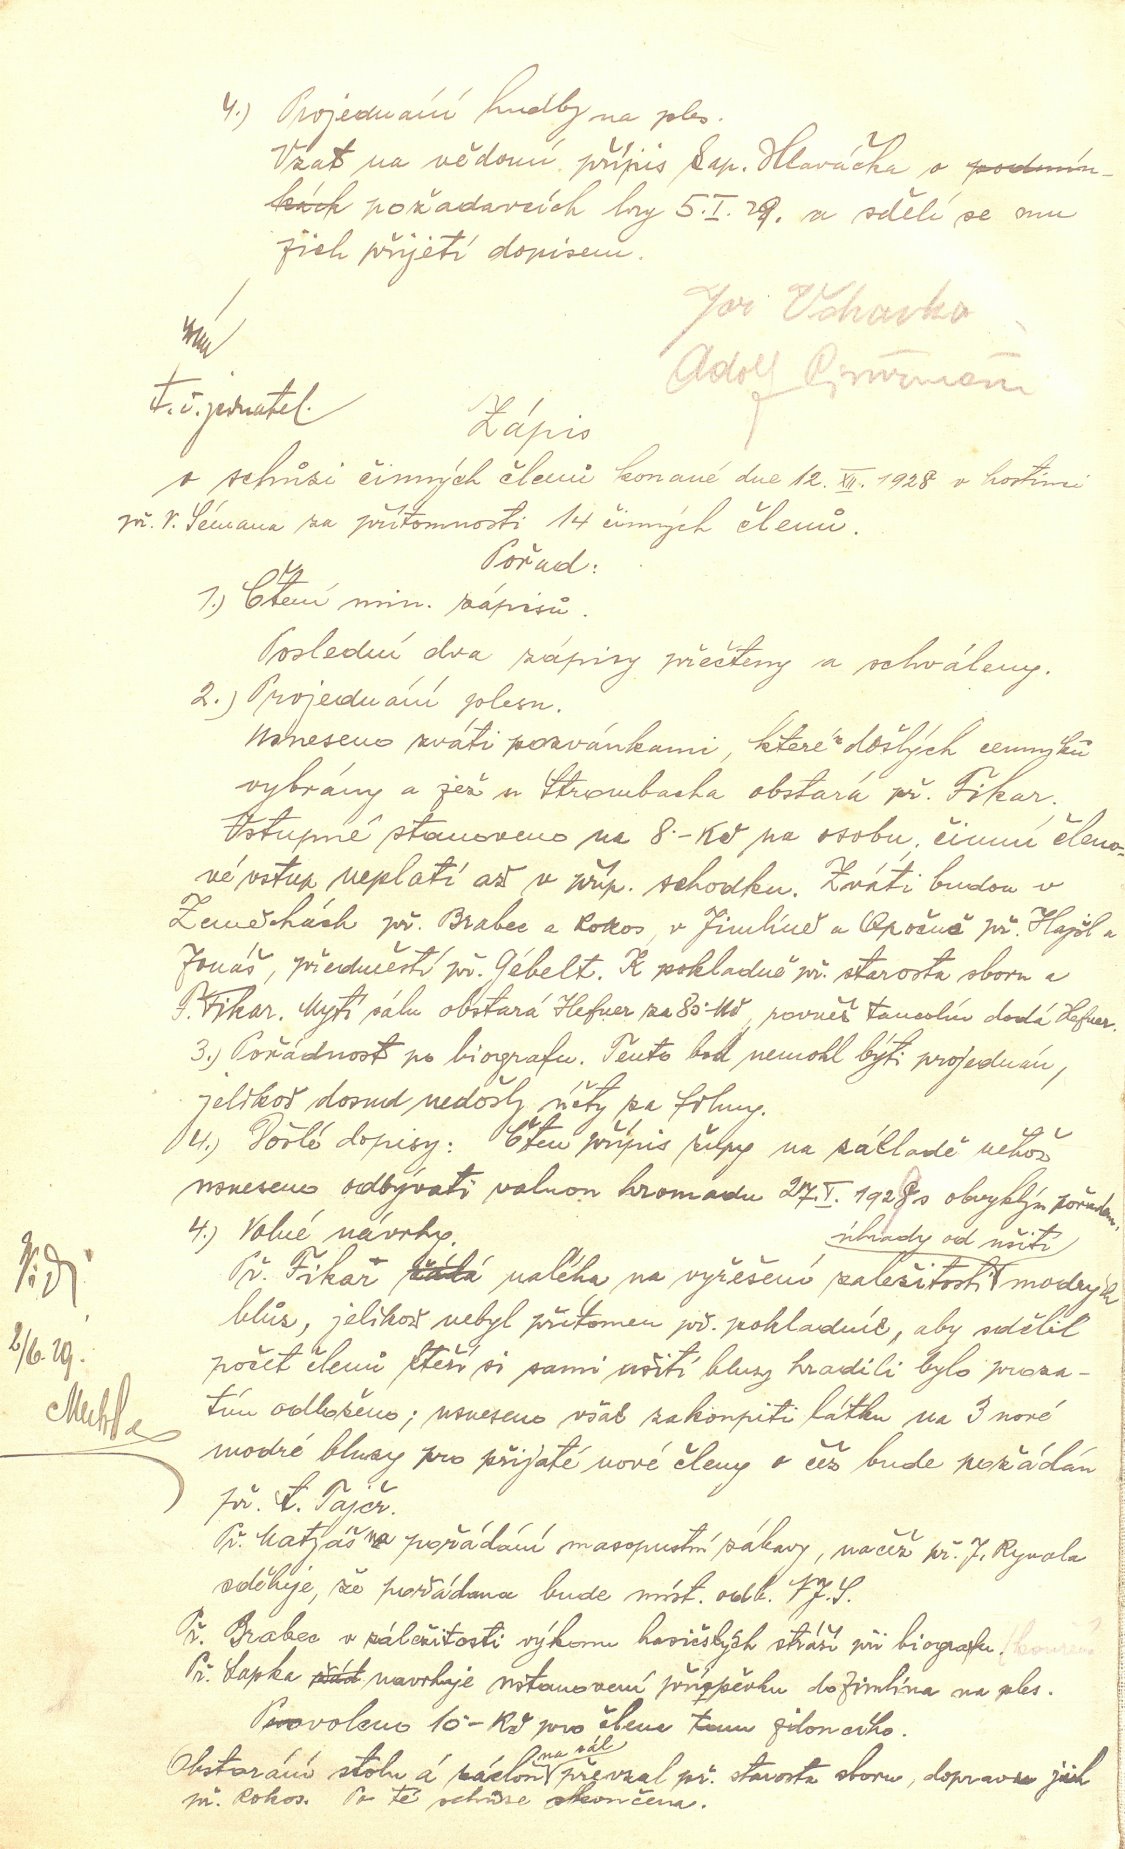 4.) Projednání hudby na ples.
Vzat na vědomí přípis kap. Hlaváčka o podmín-
kách požadavcích hry 5.I.29. a sdělí se mu
jich přijetí dopisem.
Adolf
t.č. jednatel.
Zápis
o schůzi činných členů konané dne 12. XII. 1928 v hostinci
př. V. Sémana za přítomnosti 14 činných členů.
Pořad:
1.) Čtení min. zápisů.
Poslední dva zápisy přečteny a schváleny.
2.) Projednání plesu.
Usneseno zváti pozvánkami, které z došlých cenníků
vybrány a jež u Strombacha obstará př. Fikar.
Vstupné stanoveno na 8.- Kč na osobu, činní členo-
vé vstup neplatí až v příp. schodku. Zváti budou v
Zeměchách př. Brabec a Kokos, v Jimlíně a Opočně př. Hajšl a
Jonáš, předměstí př. Gébelt. K pokladně př. starosta sboru a
P. Fikar. Mytí sálu obstará Hefner za 85 Kč, rovněž tancolín dodá Hefner.
3.) Pořádnost po biografu. Tento bod nemohl býti projednán,
jelikož dosud nedošly účty za filmy.
4.) Došlé dopisy: Čten přípis župy na základě něhož
usneseno odbývati valnou hromadu 27.I. 1929 s obvyklým pořadem.
4.) Volné návrhy.
úhrady od ušití
Př. Fikar žádá naléha na vyřešení záležitosti modrých
blůz, jelikož nebyl přítomen př. pokladník, aby sdělil
počet členů kteří si sami ušití blusy hradili bylo proza-
tím odloženo; usneseno však zakoupiti látku na 3 nové
modré blusy pro přijaté nové členy o čež bude požádán
př. t. Pajér.
Př. Matjáš na pořádání masopustní zábavy, načež př. J. Ryvola
sděluje, že pořádana bude míst. odb. NJS.
Př. Brabec v záležitosti výkonu hasičských stráží při biografu.
Př. Sapka žád navrhuje ustanovení příspěvku do Jimlína na ples.
Povoleno 10.- Kč pro člena tam jdoucího.
na sál
Obstarání stolu a záclon převzal př. starosta sboru, dopravu jich
př. Kokos. Po té schůze skončena.
Vidi
2/6.29.